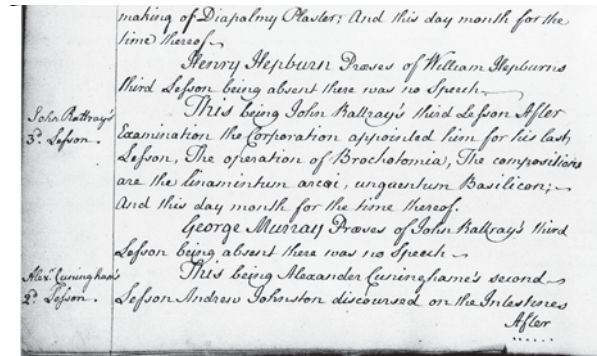 making of Diapalmy Plaster; And this day month for the
time thereof
Henry Hepburn Præses of William Hepburns
third Lesson being absent there was no Speech
John Rattray's
3d. Lesson.
This being John Rattray's third Lesson After
Examination the Corporation appointed him for his last
Lesson, The operation of Brochotomia, The compositions
are the linamintum arcæi, unguentum Basilicon;
And this day month for the time thereof.
George Murray Præses of John Rattray's third
Lesson being absent there was no Speech
Alexr. Cuningham's
2d. Lesson.
This being Alexander Cuninghame's second
Lesson Andrew Johnston discoursed on the Intestines
After